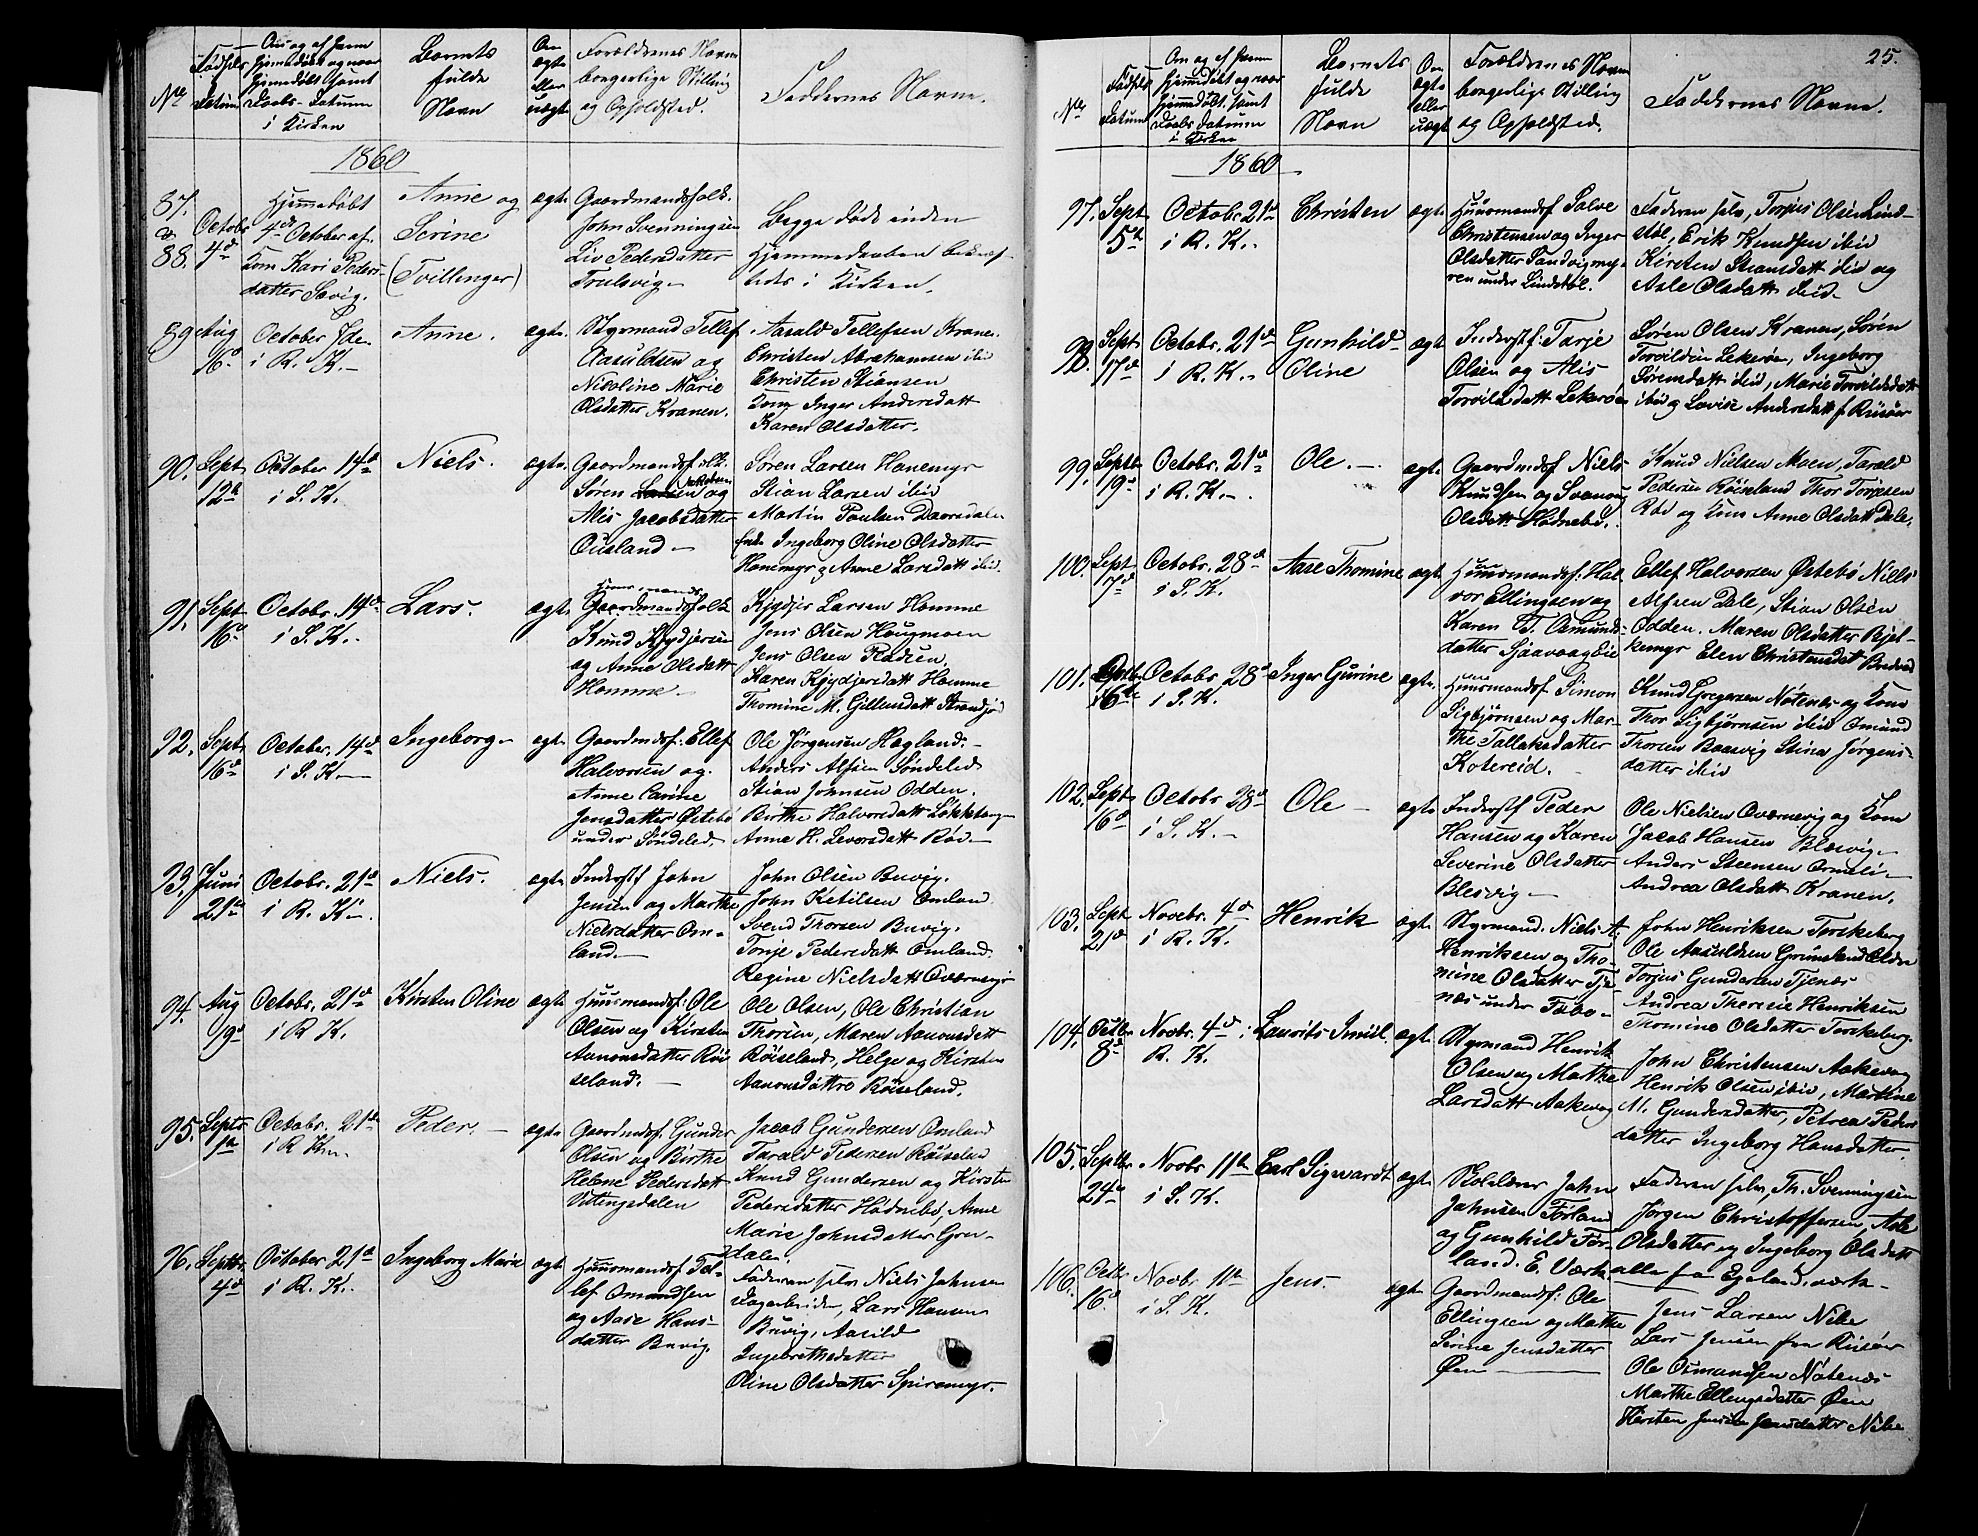 No
Fødsels
Datum
Om og af hvem
hjemmedøbt og naar
hjemmedøbt samt
Daabs-Datum
i Kirken
Barnets
fulde
Navn
Om
ægte
eller
uægte
Forældrenes Navne
borgerlige Stilling
og Opholdsted.
Faddernes Navne.
1860
87.
&
88.
Octobr
4d
Hjemmedøbt
4de October af
Kari Peders-
datter Savig.
Anne og
Serine
(Tvillinger)
ægte
Gaardmandsfolk.
John Svenningsen
Liv Pedersdatter
Trulsvig
Begge døde inden
Hjemmedaaben bekræf-
tedes i Kirken.
89
Aug
16d
October 7de
i R. K.
Anne.
ægte
Styrmand Tellef
Aasuldsen og
Nicoline Marie
Olsdatter Kranen.
Aasuld Tellefsen Kranen
Christen Abrahamsen ibid
Christen Stiansen
Inger Andersdatt
Karen Olsdatter.
90.
Sept
12d
October 14d
i S. K.
Niels.
ægte
Gaardmandsfolk
Søren Jakobsen og
Alis Jacobsdatter
Ousland
Søren Larsen Hanemyr
Stian Larsen ibid
Martin Paulsen Daarsdalen
Ingeborg Oline Olsdatter
Hanemyr & Anne Larsdatt ibid.
91.
Sept
16d
Octobr. 14d
i S. K.
Lars.
ægte
Huusmands
Gaardmandsfolk
Knud Kydjersen
og Anne Olsdatt
Homme
Kydjer Larsen Homme
Jens Olsen Hougmoen
Jens Olsen Fladsen
Karen Kydjersdatt Homme
Thomine M. Gillensdatt
92.
Sept
16d
October. 14d
i S. K.
Ingeborg
ægte
Gaardmdsf: Ellef
Halvorsen og
Anne Carine
Jensdatter Østebø
under Søndeled.
Ole Jørgensen Hagland.
Anders Alfsen Søndeled
Stian Johnsen Odden.
Birthe Halvorsdatt Løkktangen
Anne H. Levorsdatt Rød
93.
Juni
21de
Octobr. 21d
i R. K.
Niels.
ægte
Inderstf John
Jensen og Marthe
Nielsdatter Om-
land.
John Olsen Buvig.
John Ketilsen Omland.
Svend Thorsen Buvig.
Torje Pedersdatt Omland.
Regine Nielsdatt Qværnvig
94.
Aug
19d
Octobr. 21d
i R K.
Kirsten Oline
ægte
Huusmandsf: Ole
Olsen og Kirsten
Aanonsdatter Røi-
seland.
Ole Olsen, Ole Christian
Thorsen, Maren Aanonsdatt
Røiseland, Helge og Kirsten
Aanonsdattre Røiseland.
95.
Septr.
1d
Octobr. 21d
i R K
Peder.
ægte
Gaardmdsf. Gunder
Olsen og Birthe
Helene Pedersdatt
Vittingsdalen
Jacob Gundersen Omland
Tarald Pedersen Røiseland
Knud Gundersen og Kirsten
Pedersdatter Hødnebø, Anne
Marie Johnsdatter Gren-
dalen.
96.
Septbr.
4d
October 21d
i R. K.
Ingeborg Marie
ægte
Huusmandsf Tel-
lef Omandsen
og Aase Hans-
datter Buvig.
Faderen selv Niels Johnsen
Lars Hansen
Buvig, Aasild
Ingebrethsdatter
Oline Olsdatter Spiremyr.
25.
No
Fødsels
Datum
Om og af hvem
hjemmedøbt og naar
hjemmedøbt. samt
Daabs-Datum
i Kirken
Barnets
fulde
Navn
Om
ægte
eller
uægte
Forældrenes Navne
borgerlige Stilling
og Opholdsted.
Faddernes Navne.
1860
97.
Sept
5d
Octobr 21d
i R. K.
Christen
ægte
Huusmandsf Salve
Christensen og Inger
Olsdatter Sandvigmy-
ren under Lindstøl.
Faderen selv, Torjus Olsen Lind-
støl, Erik Knudsen ibid
Kirsten Stiansdatt ibid og
Aale Olsdatt ibid.
98.
Sept
17d
Octobr. 21d
i R. K.
Gunhild
Oline
ægte
Inderstf: Tarje
Olsen og Alis
Torvildsdatt Lekerøen
Søren Olsen Kranen, Søren
Torvildsen Lekerøen, Ingeborg
Sørensdatt ibid, Marie Torvildsdatt
ibid og Lovise Andersdatt f Risøer
99.
Septbr
19d
Octobr. 21d
i R. K.
Ole.
ægte
Gaardmdsf Niels
Knudsen og Svanaug
Olsdatt Hødnebø.
Knud Nielsen Moen, Tarald
Pedersen Røiseland Thor Torjesen
Røed og Kone Anne Olsdatt Dale.
100.
Sept
17d
Octobr. 28d
i S. K.
Aase Thomine
ægte
Huusmandsf: Hal-
vor Ellingsen og
Karen T. Osmunds-
datter Sjaavaageie
Ellef Halvorsen Østebø Niels
Alfsen Dale, Stian Olsen
Odden. Maren Olsdatter Bjel-
kemyr Elen Christensdatt
101.
16de
Octobr 28d
i S. K.
Inger Gurine
ægte
Huusmandsf Simon
Sigbjørnsen og Mar-
the Tallaksdatter
Kotereid.
Knud Gregersen Nøtenes og Kone
Thor Sigbjørnsen ibid Omund
Thorsen Baasvig Stine Jørgens-
datter ibid
102.
Sept
16d
Octobr 28d
i S. K.
Ole
ægte
Inderstf Peder
Hansen og Karen
Severine Olsdatter
Blesvig
Ole Nielsen Qværnvig og Kone
Jacob Hansen Blesvig
Anders Steensen Ormeli
Andrea Olsdatt Kranen.
103.
Sept
21d
Novbr. 4d
i R. K.
Henrik
ægte
Styrmand. Niels A.
Henriksen og Tho-
mine Olsdatter Tje-
næs under Tobo
John Henriksen Torskeberg
Ole Aasuldsen Grønsund
Torjus Gundersen Tjenæs
Andrea Theresie Henriksen
Thomine Olsdatter Torskeberg.
104.
Octbr
8d
Novbr. 4d
R. K.
Laurits Imiel
ægte
Styrmand Henrik
Olsen og Marthe
Larsdatt Aakevag
John Christensen Aakevag
Henrik Olsen ibid, Martine
M. Gundersdatter, Petrea Peders
datter Ingeborg Hansdatter.
105.
Septbr.
24d
Novbr 11te
i S. K.
Carl Sigvardt
ægte
John
Johnsen Førland
og Gunhild Før-
land. E. Værk
Faderen selv, Th. Svenningsen
Jørgen Christoffersen, Aale
Olsdatter og Ingeborg Olsdatt
alle fra Egelands værk
106.
Octbr
16d
Novbr 11te
i S. K.
Jens
ægte
Gaardmandsf: Ole
Ellingsen og Marthe
Serine Jensdatter
Øen
Jens Larsen Nibe
Lars Jensen fra Risøer
Ole Osmundsen Nøtenes
Marthe Ellingsdatter Øen
Kirsten Jensdatter Nibe